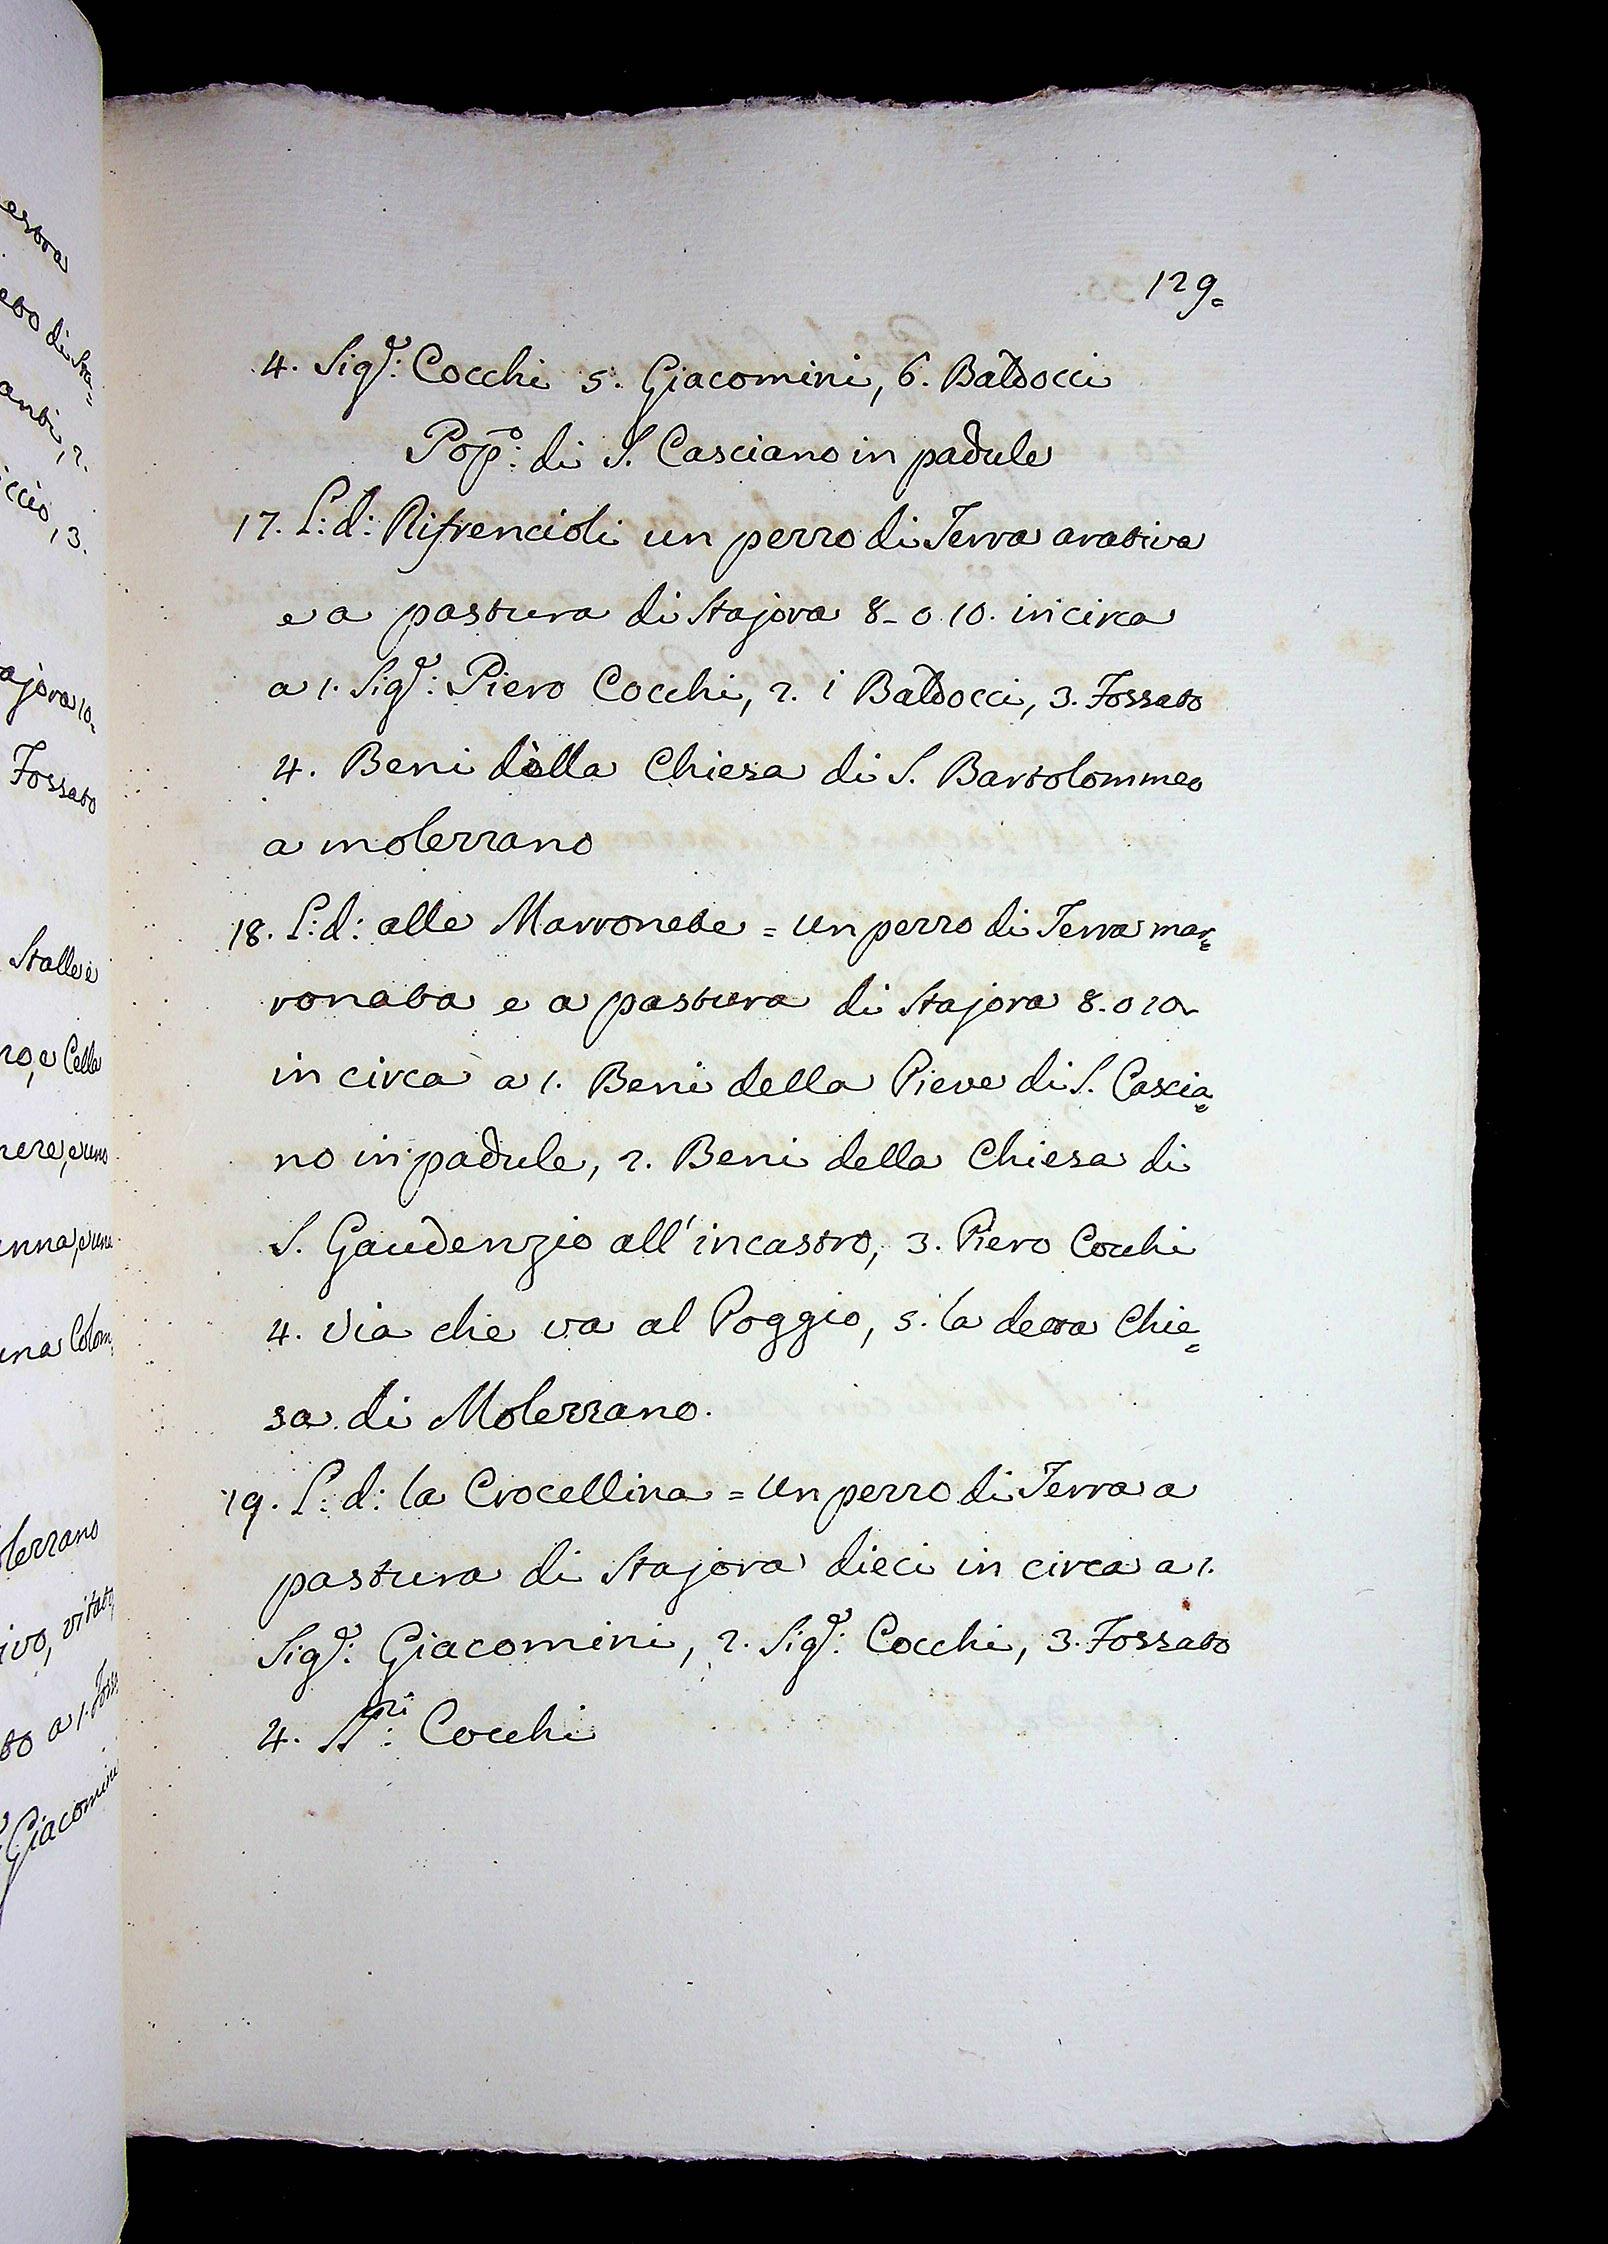 129=
4. Sig.e: Cocchi 5. Giacomini, 6. Baldocci
Pop.o: di S. Casciano in padule
17. L: d: Rifrencioli un pezzo di Terra arativa
e a pastura di Stajora 8_ o 10. in circa
a 1. Sig.e: Piero Cocchi, 2. i Baldocci, 3. Fossato
4. Beni della Chiesa di S. Bartolommeo
a molezzano
18. L: d: alle Marronete = un pezzo di Terra mar=
ronata e a pastura di Stajora 8. o 10
in circa a 1. Beni della Pieve di S. Cascia=
no in padule, 2. Beni della Chiesa di
S. Gaudenzio all'incastro, 3. Piero Cocchi
4. Via che va al Poggio, 5. la detta Chie=
sa di Molezzano.
19. L: d: la Crocellina = un pezzo di Terra a
pastura di Stajora dieci in circa a 1.
Sig.e: Giacomini, 2. Sig.e: Cocchi, 3. Fossato
4. Cocchi
Fossato
Giacomini